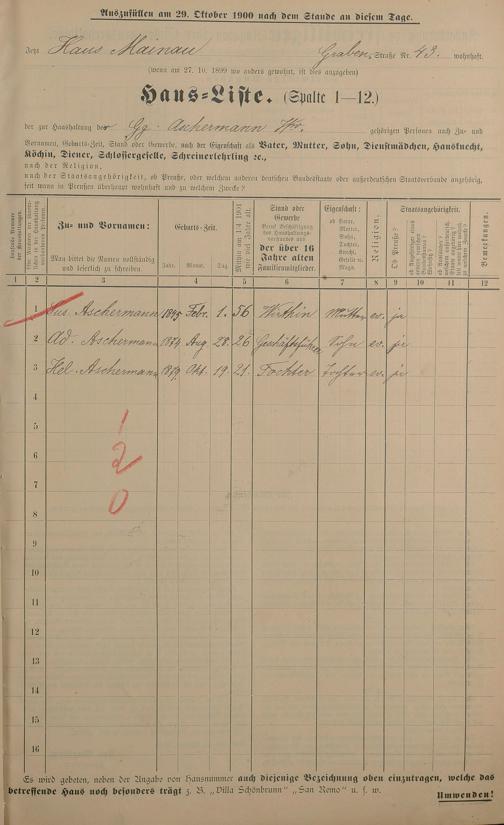 Auszufüllen am 29. Oktober 1900 nach dem Stande an diesem Tage.
Jetzt Haus Mainau Graben, Straße Nr. 43. wohnhaft.
(wenn am 27. 10. 1899 wo anders gewohnt, ist dies anzugeben)
Haus-Liste. (Spalte 1—12.)
der zur Haushaltung der Gg. Aschermann Ww. gehörigen Personen nach Zu- und
Vornamen, Geburts-Zeit, Stand oder Gewerbe, auch der Eigenschaft als Vater, Mutter, Sohn, Dienstmädchen, Hausknecht,
Köchin, Diener, Schlossergeselle, Schreinerlehrling 2c.,
nach der Religion,
nach der Staatsangehörigkeit, ob Preuße, oder welchem anderen deutschen Bundesstaate oder außerdeutschen Staatsverbande angehörig,
seit wann in Preußen überhaupt wohnhaft und zu welchem Zwecke?
Zu- und Vornamen:
Man bittet die Namen vollständig
und leserlich zu schreiben
Geburts-Zeit.
Jahr. Monat. Tag.
Mithin am 1/4 1901 wie viel Jahre alt.
Stand oder
Gewerbe
der über 16
Jahre alten
Familienmitglieder.
Eigenschaft:
ob Vater,
Mutter,
Sohn,
Tochter,
Knecht,
Geselle u.
Magd.
Religion.
Staatsangehörigkeit.
Ob Preuße?
Bemerkungen.
1 2 3 4 5 6 7 8 9 10 11 12
1 Aschermann 1845 Febr. 1. 56 Wirthin Mutter ev. ja
2 Ad. Aschermann 1874 Aug 28. 26 Geschäftsführer Sohn ev. ja
3 Hel. Aschermann 1879 Okt. 19. 21. Tochter Tochter ev. ja
4
5 1
6 2
7
8 0
9
10
11
12
13
14
15
16
Es wird gebeten, neben der Angabe von Hausnummer auch diejenige Bezeichnung oben einzutragen, welche das
betreffende Haus noch besonders trägt z. B. „Villa Schönbrunn" „San Remo" u. s. w.
Umwenden!